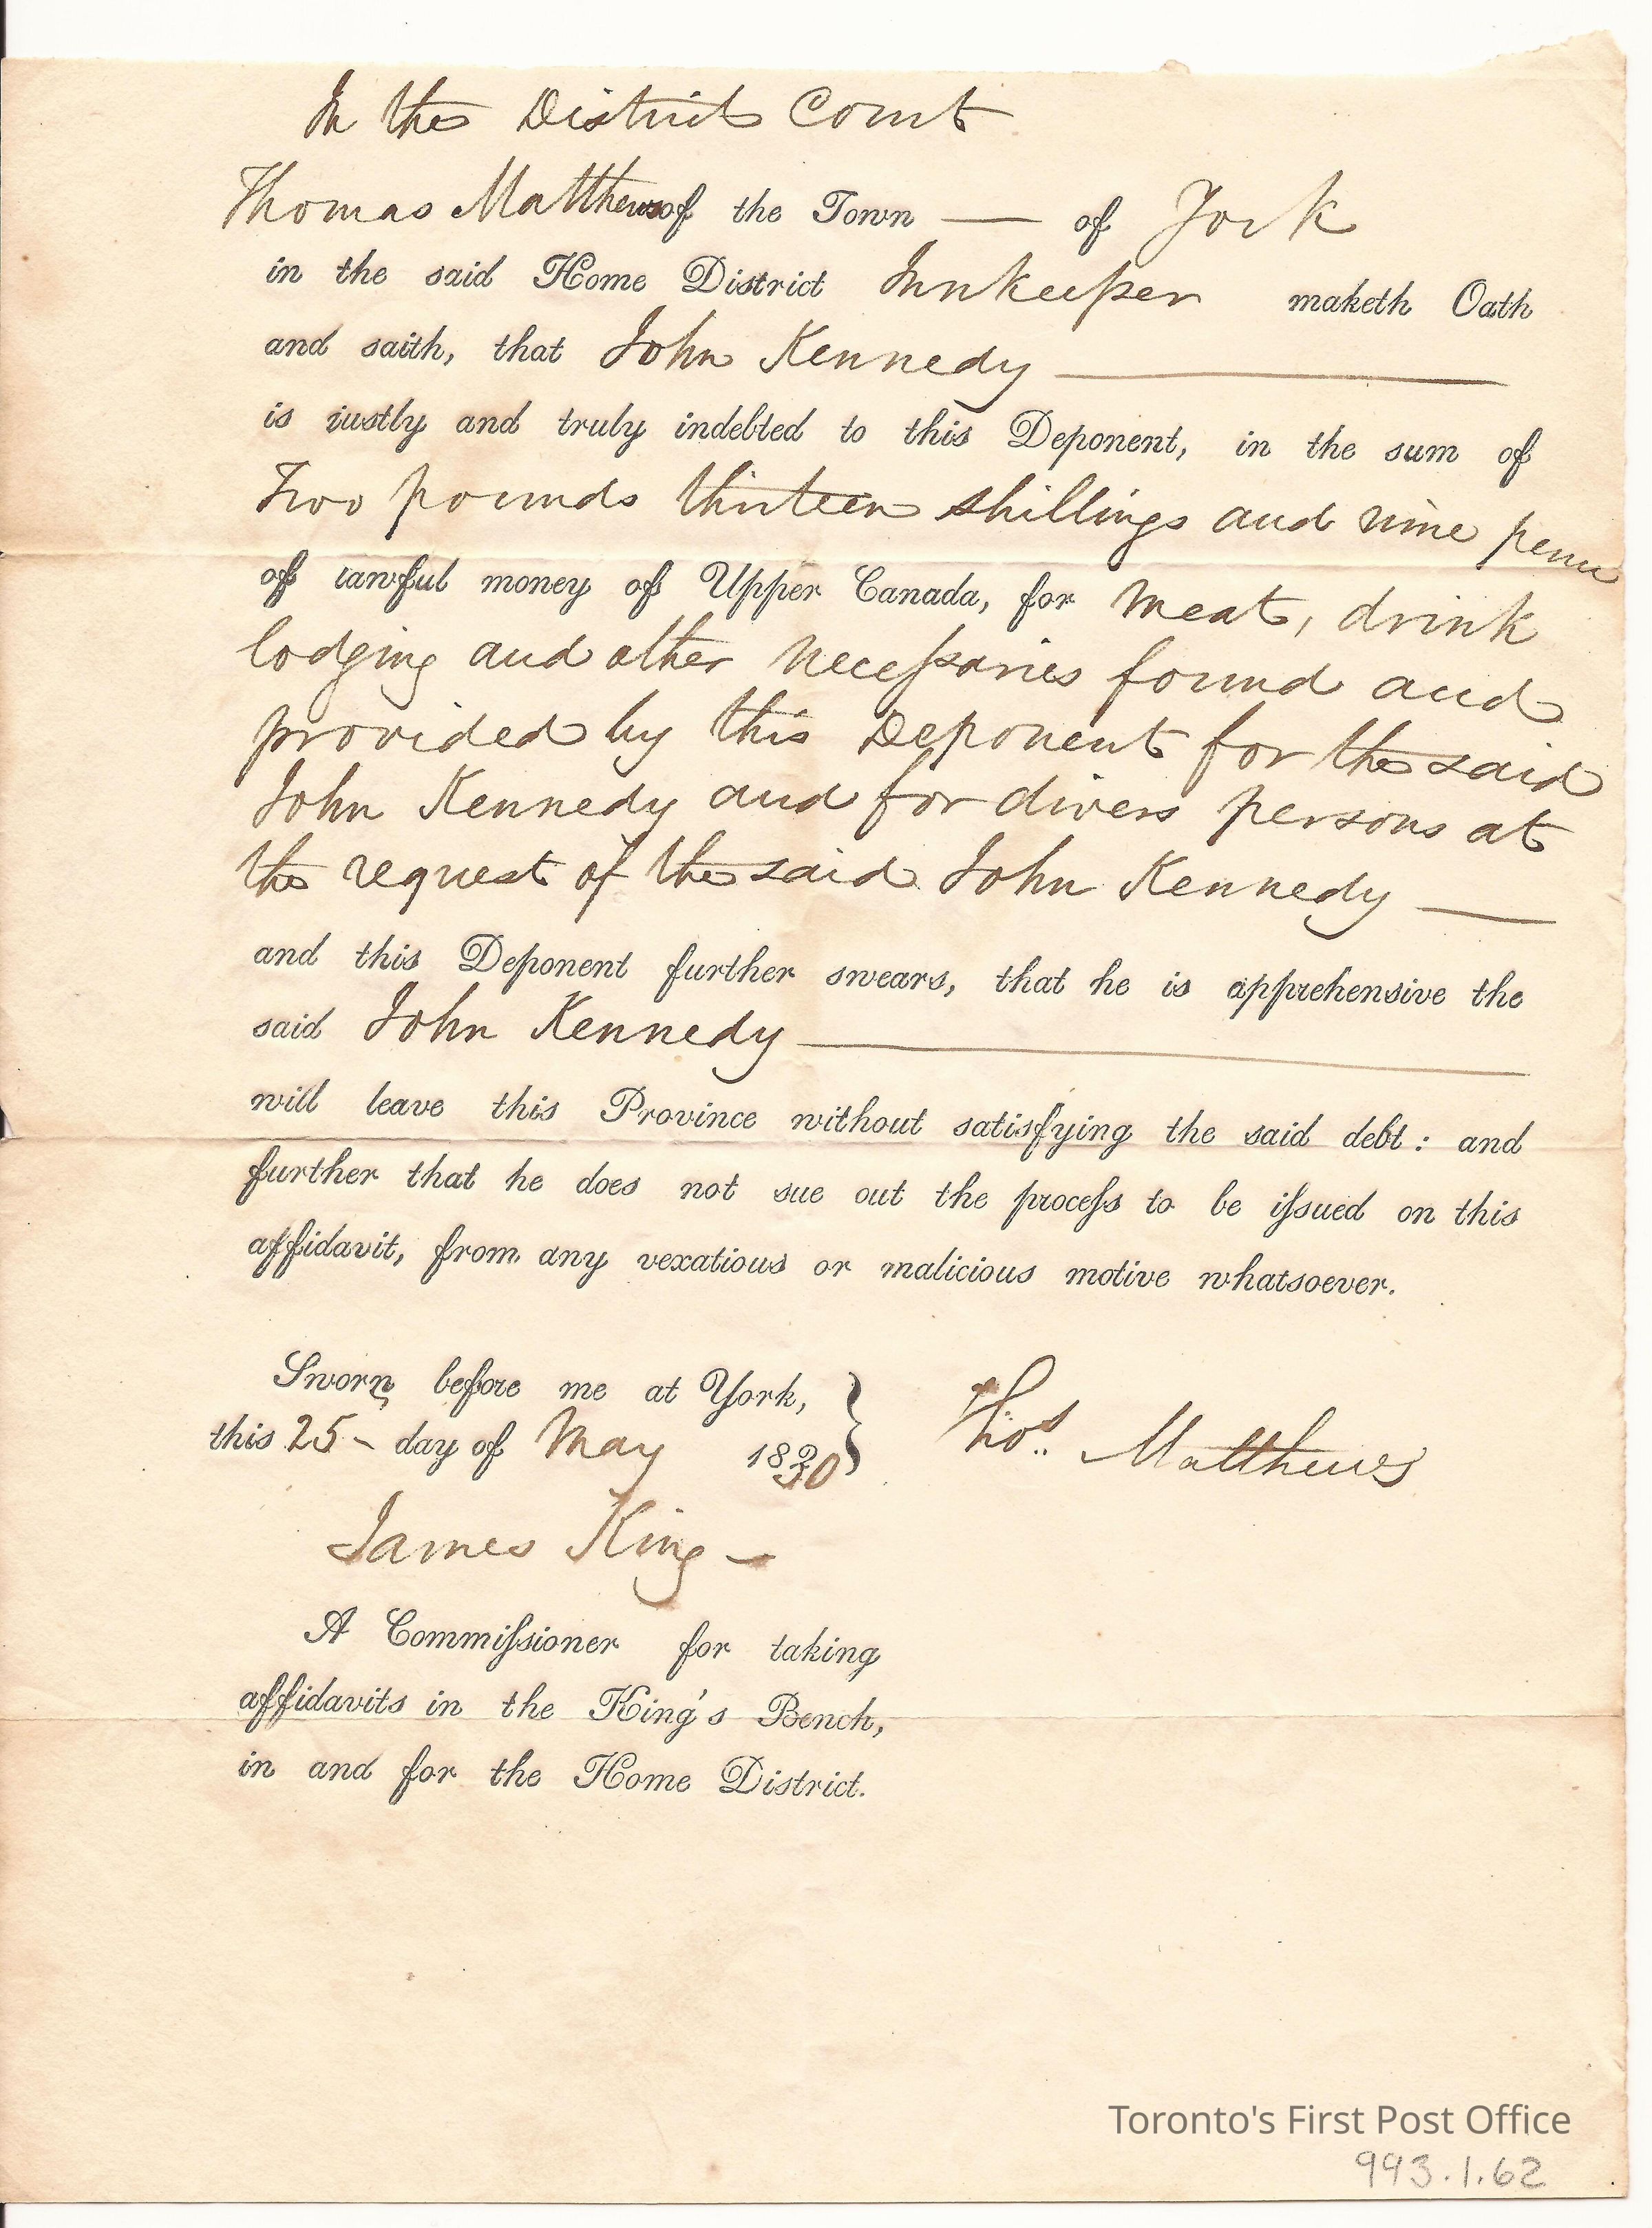 In the District Court
Thomas Matthews of the Town — of York
in the said Home District Innkeeper maketh Oath
and saith, that John Kennedy
is iustly and truly indebted to this Deponent, in the sum of
Two pounds thirteen shillings and nine pence
of lawful money of Upper Canada, for meat, drink
lodging and other neceſsaries found and
provided by this Deponent for the said
John Kennedy and for divers persons at
the request of the said John Kennedy —
and this Deponent further swears, that he is apprehensive the
said John Kennedy
will leave this Province without satisfying the said debt: and
further that he does not sue out the proceſs to be iſsued on this
affidavit, from any vexatious or malicious motive whatsoever.
Sworn before me at York,
this 25 - day of May 1830
Thos. Matthews
James King -
A Commiſsioner for taking
affidavits in the King's Bench,
in and for the Home District.
Toronto's First Post Office
993.1.62